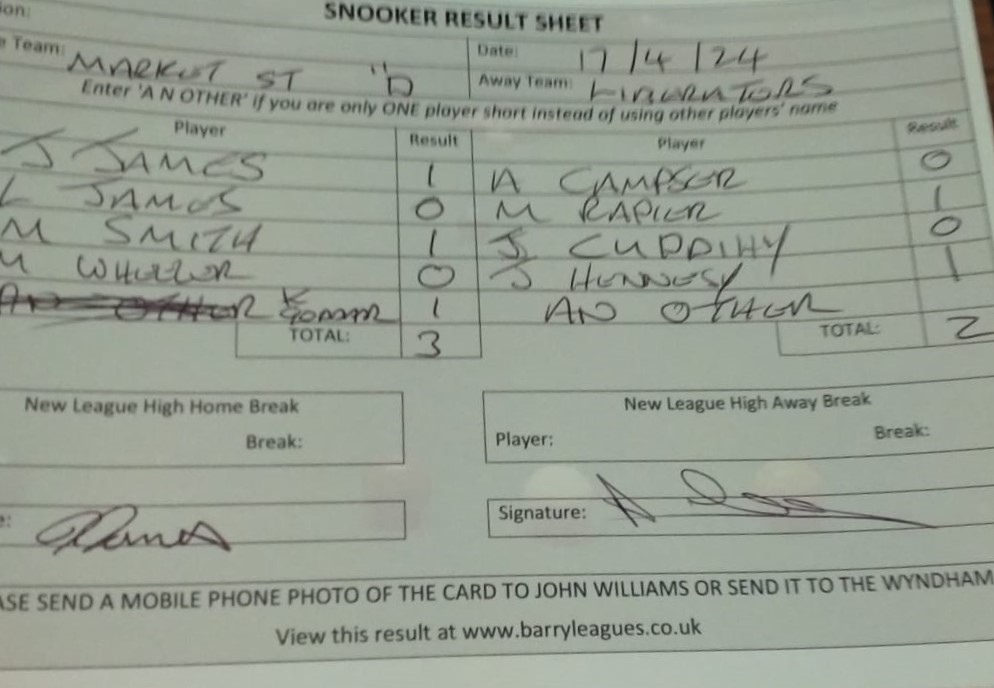 SNOOKER RESULT SHEET
on:
Team: MARKET ST "D
Date: 17/4/24
Away Team: LIBERATORS
Enter 'A N OTHER' if you are only ONE player short instead of using other players' name
Player Result Player Result
J JAMES 1 A CAMPSER 0
L JAMES 0 M RAPIER 1
M SMITH 1 J CUDDIHY 0
M WHELLER 0 J HENNESY 1
K 1 AN OTHER
TOTAL: 3 TOTAL: 2
New League High Home Break New League High Away Break
Break: Player: Break:
e: Signature:
ASE SEND A MOBILE PHONE PHOTO OF THE CARD TO JOHN WILLIAMS OR SEND IT TO THE WYNDHAM
View this result at www.barryleagues.co.uk